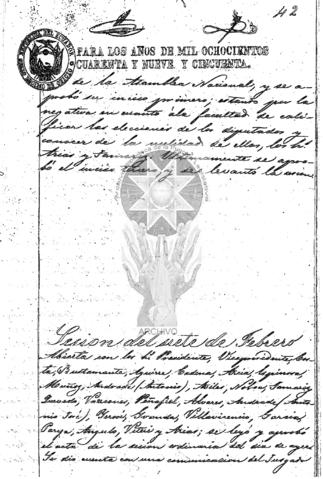 42
PARA LOS AÑOS DE MIL OCHOCIENTOS
CUARENTA Y NUEVE, Y CINCUENTA.
de la Asamblea Nacional, y se a-
probó su inciso primero; estando por la
negativa en cuanto a la facultad de cali-
ficar las elecciones de los diputados y
conocer de la nulidad de ellas, los
Arias y Ultimamente se apro-
bó el inciso y se levantó la sesion
ARCHIVO
Sesion del siete de Febrero
Abierta con los Presidente, Vicepresidente,
Bustamante, Aguirre, Cadena, Espinosa
Muñoz, Andrade (Antonio), Noboa,
Peñafiel, Alvares, Andrade (An-
tonio José), Granda, Villavicencio, Garcia
Parga, Angulo, y Arias; se leyó y aprobó
el acta de la sesion ordinaria del dia de ayer
Se dio cuenta con una comunicacion del Juzgado